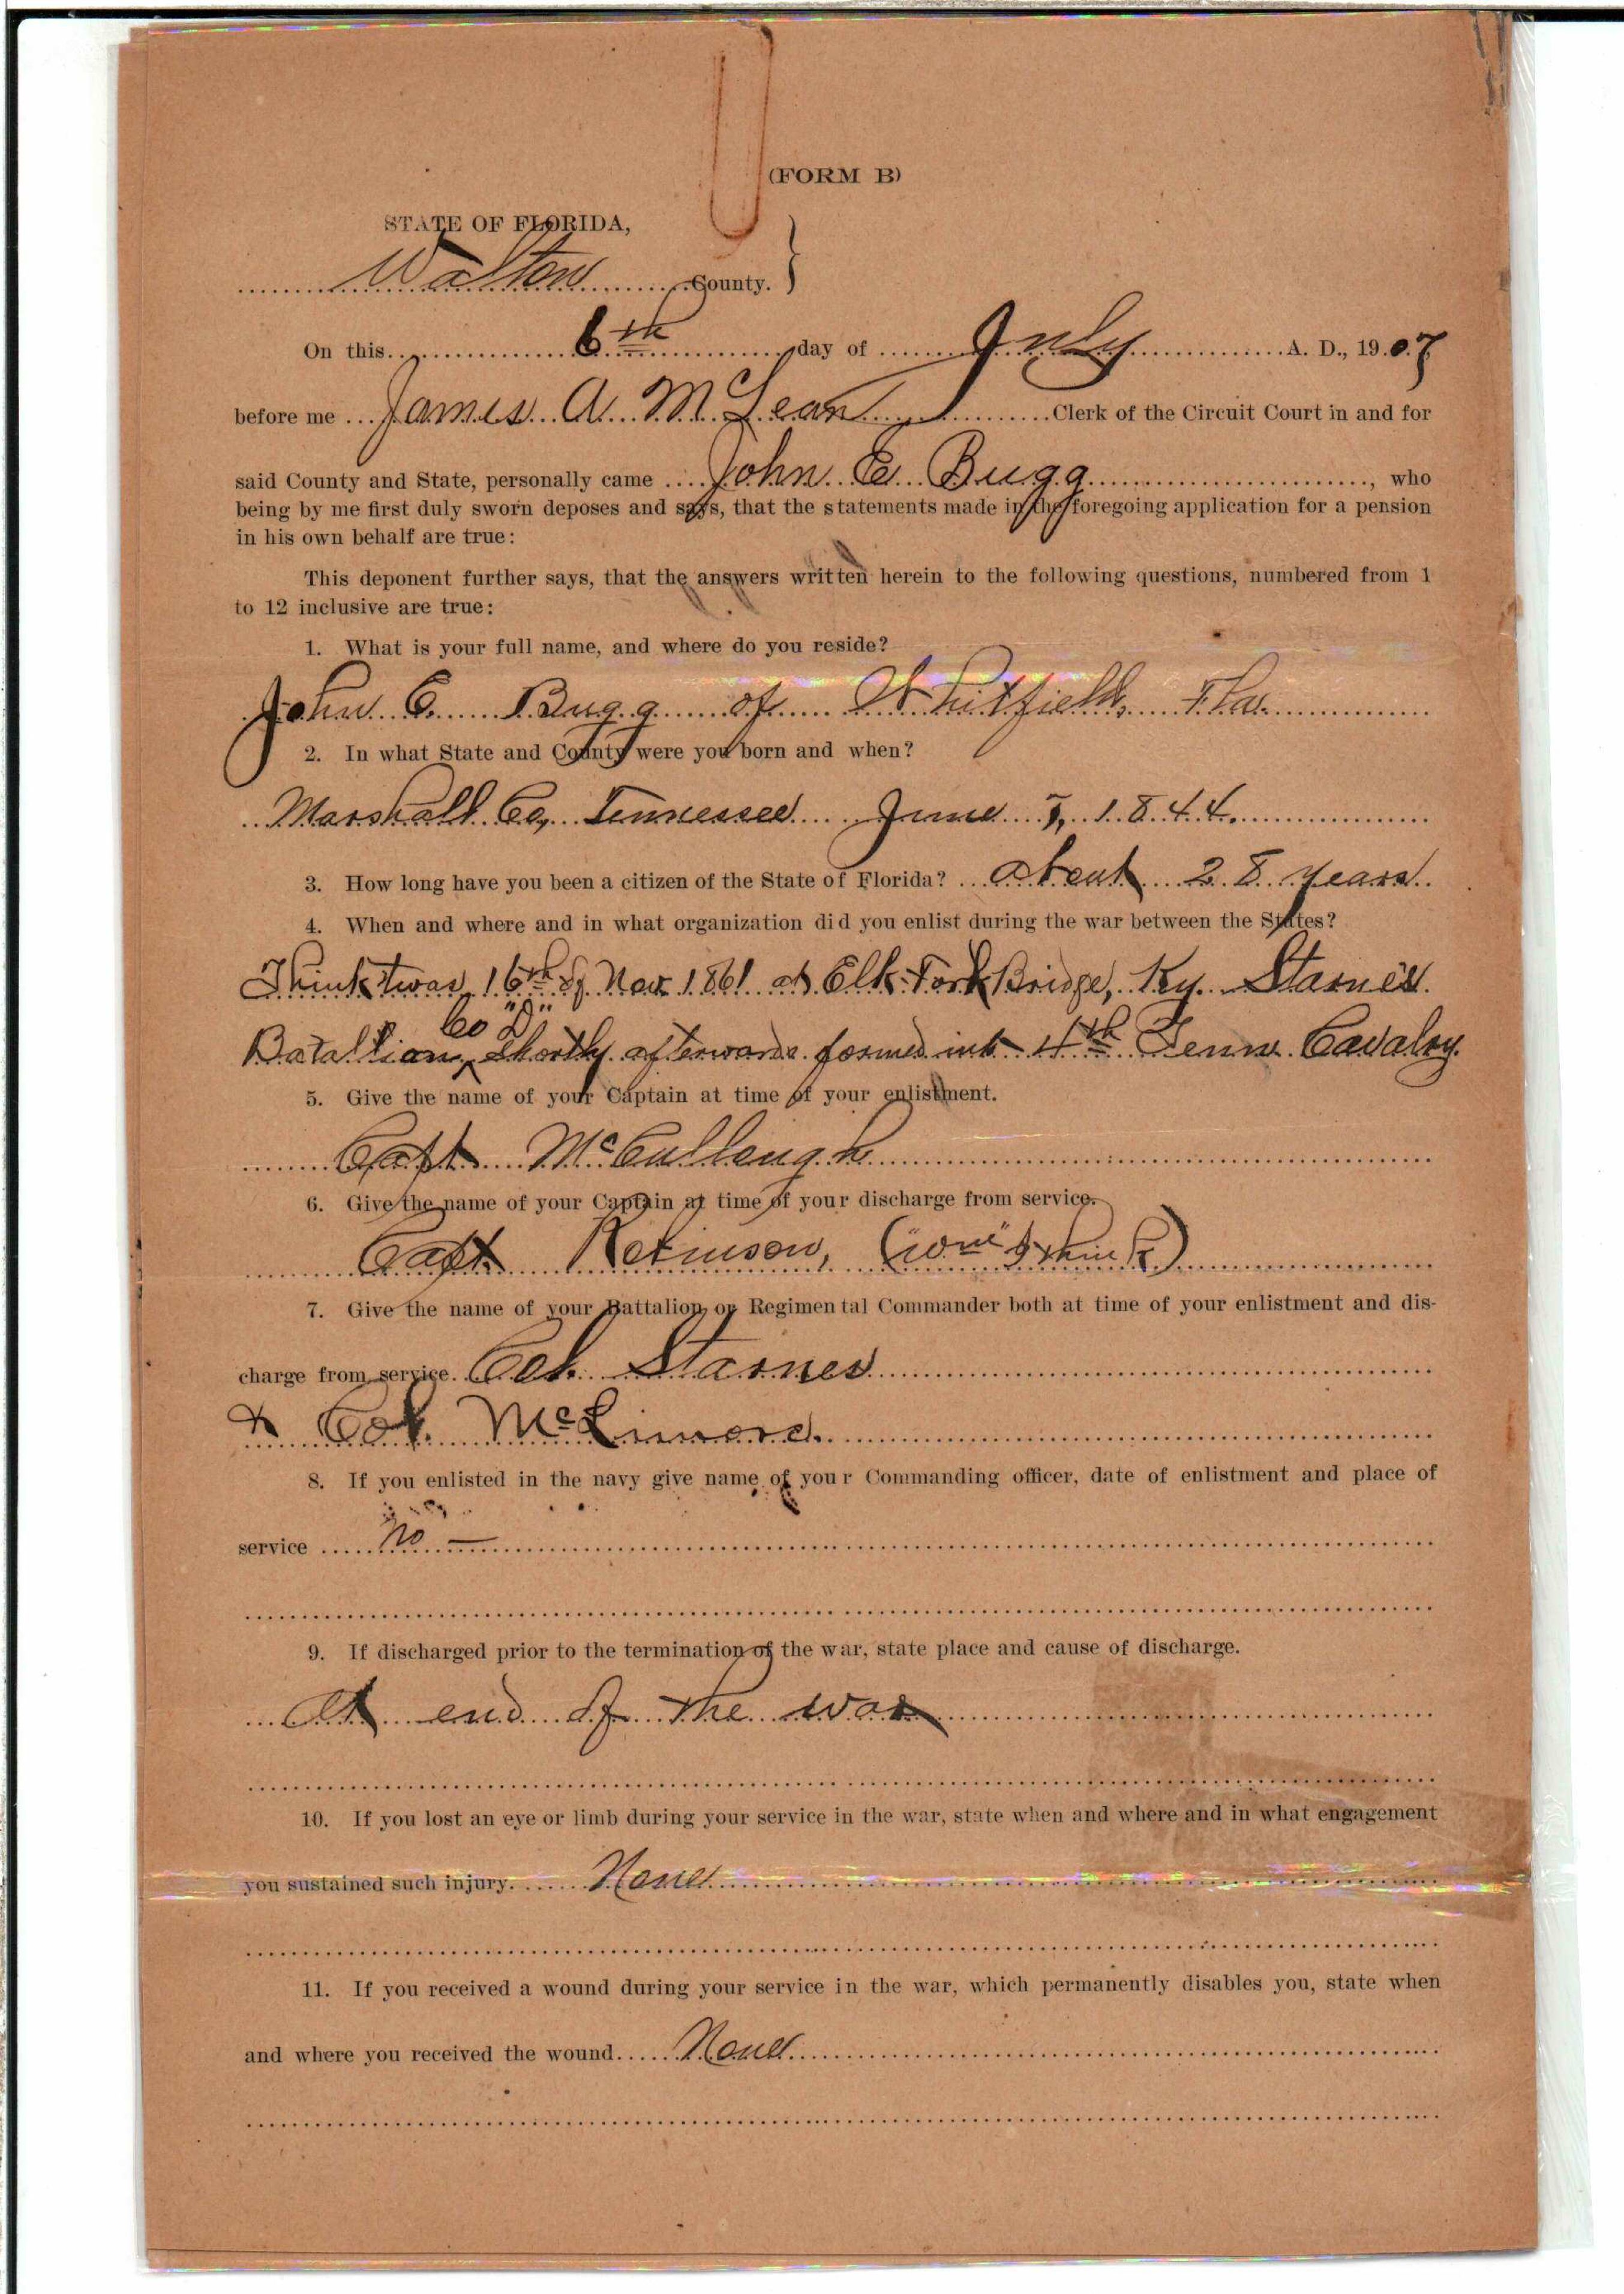 (FORM B)
STATE OF FLORIDA,
Walton County. }
On this 6th day of July A. D., 1907
before me James A. McLean Clerk of the Circuit Court in and for
said County and State, personally came John E Bugg, who
being by me first duly sworn deposes and says, that the statements made in the foregoing application for a pension
in his own behalf are true:
This deponent further says, that the answers written herein to the following questions, numbered from 1
to 12 inclusive are true:
1. What is your full name, and where do you reside?
John E. Bugg of Whitfield, Fla.
2. In what State and County were you born and when?
Marshall Co, Tennessee June 1844.
3. How long have you been a citizen of the State of Florida? About 28 years.
4. When and where and in what organization did you enlist during the war between the States?
Think twas 16th of Nov. 1861 at Elk Fork Bridge, Ky. Starnes
Co "D"
Batallion, shortly afterwards formed into 4th Tenn Cavalry.
5. Give the name of your Captain at time of your enlistment.
Capt McCullough
6. Give the name of your Captain at time of your discharge from service.
Capt Robinson, ("Wm" I think)
7. Give the name of your Battalion or Regimental Commander both at time of your enlistment and dis-
charge from service. Col. Starnes
& Col. McLimore.
8. If you enlisted in the navy give name of your Commanding officer, date of enlistment and place of
service no —
9. If discharged prior to the termination of the war, state place and cause of discharge.
At end of the war
10. If you lost an eye or limb during your service in the war, state when and where and in what engagement
you sustained such injury. None
11. If you received a wound during your service in the war, which permanently disables you, state when
and where you received the wound. None